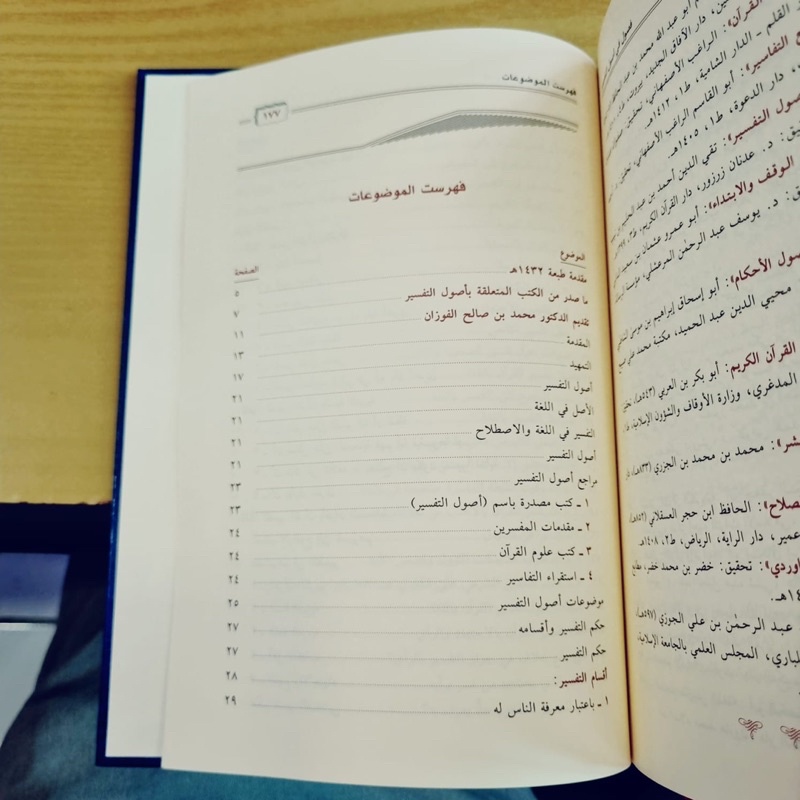 القرآن»: الراغب الأصفهاني، تحقيق:
القلم ـ الدار الشامية، ط١، ١٤١٢هـ.
التفاسير»: أبو القاسم الراغب الأصفهاني، تحقيق: د.
دار الدعوة، ط١، ١٤٠٥هـ.
صول التفسير»: تقي الدين أحمد بن عبد الحليم
د. عدنان زرزور، دار القرآن الكريم، ط٢،
الوقف والابتداء»: أبو عمرو عثمان بن سعيد
د. يوسف عبد الرحمٰن المرعشلي، مؤسسة
صول الأحكام»: أبو إسحاق إبراهيم بن موسى
محيي الدين عبد الحميد، مكتبة محمد علي صبيح
القرآن الكريم: أبو بكر بن العربي (٥٤٣هـ)،
المدغري، وزارة الأوقاف والشؤون الإسلامية،
شر»: محمد بن محمد بن الجزري (٨٣٣هـ)،
صلاح»: الحافظ ابن حجر العسقلاني (٨٥٢هـ)،
عمير، دار الراية، الرياض، ط٢، ١٤٠٨هـ.
اوردي»: تحقيق: خضر بن محمد خضر،
عبد الرحمٰن بن علي الجوزي (٥٩٧هـ)،
لباري، المجلس العلمي بالجامعة الإسلامية،
فهرست الموضوعات
١٧٧
فهرست الموضوعات
الموضوع الصفحة
مقدمة طبعة ١٤٣٢هـ ٥
ما صدر من الكتب المتعلقة بأصول التفسير ٧
تقديم الدكتور محمد بن صالح الفوزان ١١
المقدمة ١٣
التمهيد ١٧
أصول التفسير ٢١
الأصل في اللغة ٢١
التفسير في اللغة والاصطلاح ٢١
أصول التفسير ٢١
مراجع أصول التفسير ٢٣
١ ـ كتب مصدرة باسم (أصول التفسير) ٢٣
٢ ـ مقدمات المفسرين ٢٤
٣ ـ كتب علوم القرآن ٢٤
٤ ـ استقراء التفاسير ٢٤
موضوعات أصول التفسير ٢٥
حكم التفسير وأقسامه ٢٧
حكم التفسير ٢٧
أقسام التفسير: ٢٨
١ ـ باعتبار معرفة الناس له ٢٩